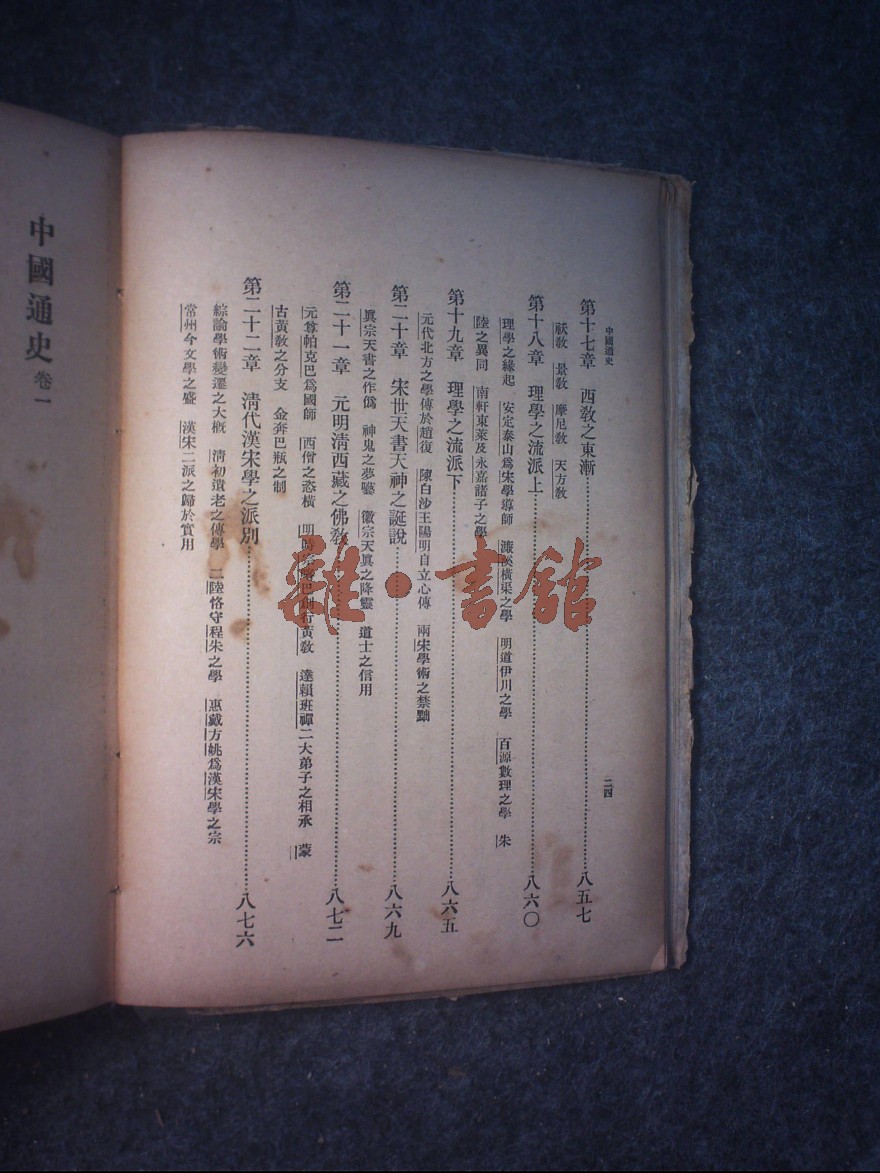 中國通史
二四
第十七章 西教之東漸 八五七
祅教 景教 摩尼教 天方教
第十八章 理學之流派上 八六〇
理學之緣起 安定泰山爲宋學導師 濂溪橫渠之學 明道伊川之學 百源數理之學 朱
陸之異同 南軒東萊及永嘉諸子之學
第十九章 理學之流派下 八六五
元代北方之學傳於趙復 陳白沙王陽明自立心傳 兩宋學術之禁黜
第二十章 宋世天書天神之誕說 八六九
眞宗天書之作僞 神鬼之夢囈 徽宗天眞之降靈 道士之信用
第二十一章 元明清西藏之佛教 八七二
元尊帕克巴爲國師 西僧之恣橫 明 巴創行黃教 達賴班禪二大弟子之相承 蒙
古黃教之分支 金奔巴瓶之制
第二十二章 清代漢宋學之派別 八七六
綜論學術變遷之大概 清初遺老之傳學 二陸恪守程朱之學 惠戴方姚爲漢宋學之宗
常州今文學之盛 漢宋二派之歸於實用
中國通史 卷一
雜·書館